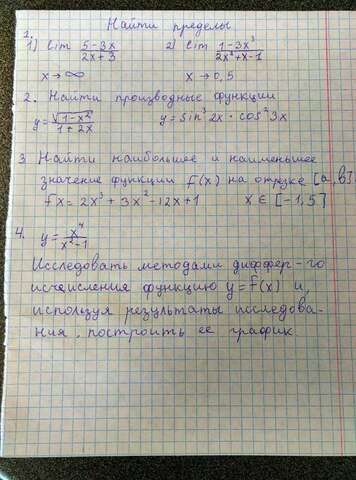 Найти пределы
1.
1) lim (5-3x)/(2x+3) 2) lim (1-3x³)/(2x²+x-1)
x→∞ x→0,5
2. Найти производные функции
y=√(1-x²)/(1+2x) y=sin³2x · cos²3x
3 Найти наибольшее и наименьшее
значение функции f(x) на отрезке [a,b]
fx=2x³+3x²-12x+1 x∈[-1,5]
4. y=x⁴/(x³-1)
Исследовать методами диффер-го
исчисления функцию y=f(x) и,
используя результаты исследова-
ния, построить ее график